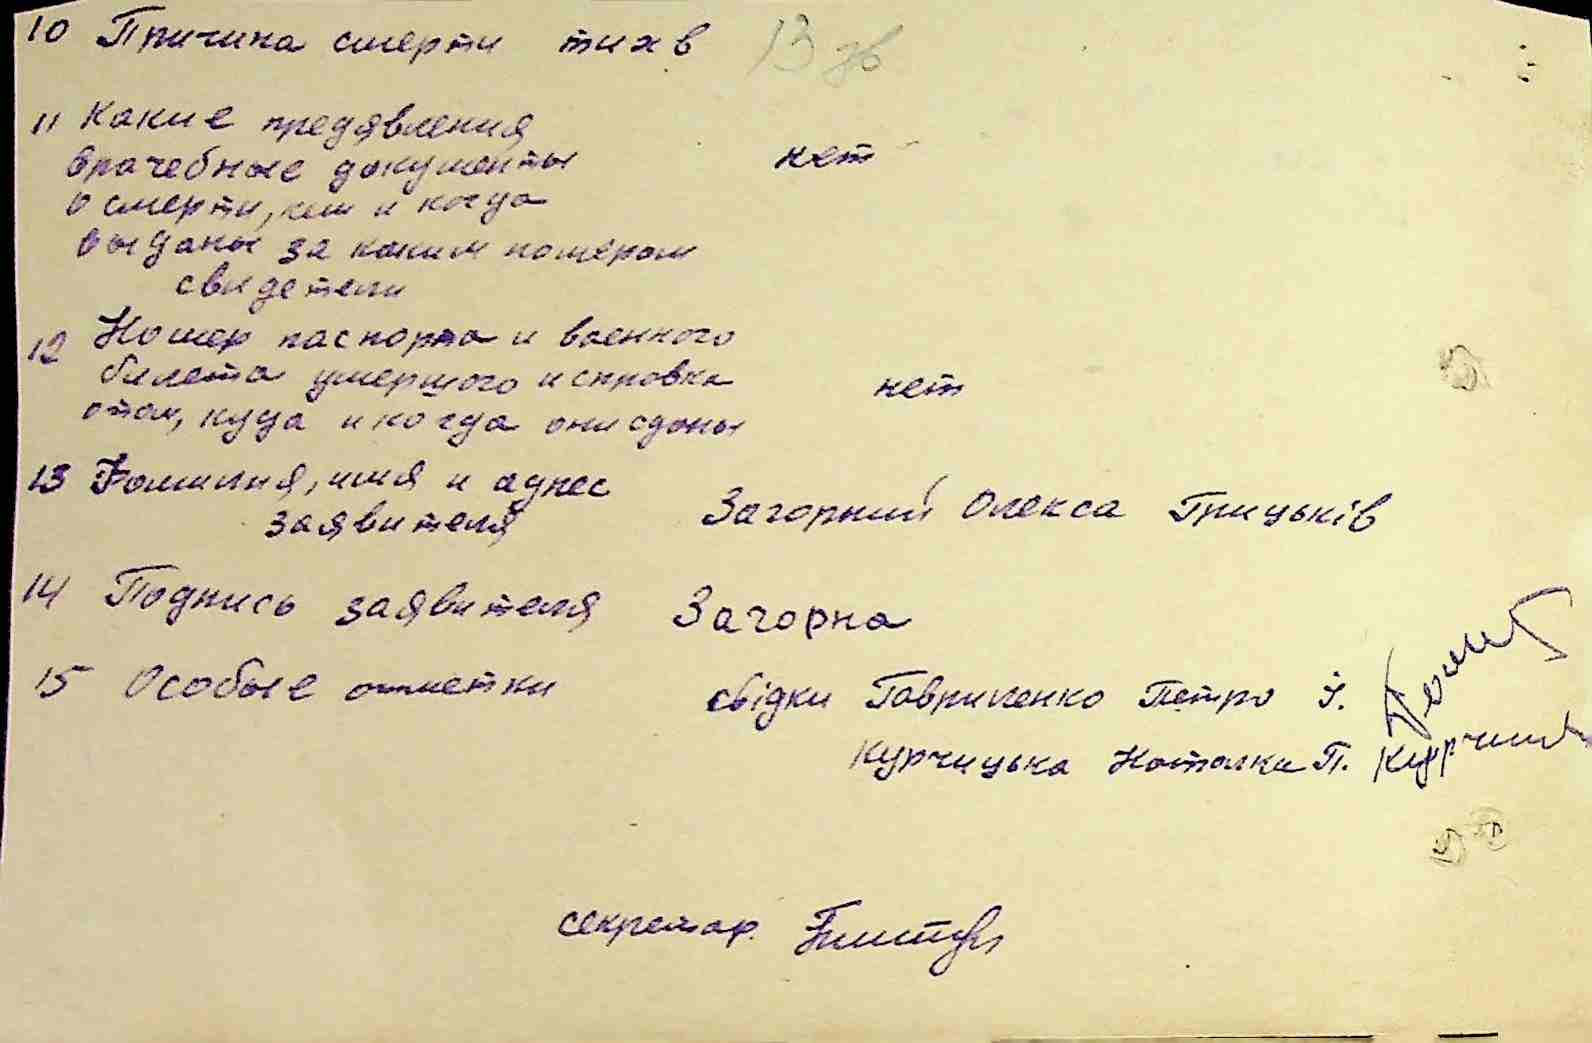 10 Причина смерти тихв 13 зв
11 Какие предявления
врачебные документы нет
о смерти, кем и когда
выданы за каким номером
свидетели
12 Номер паспорта и военного
билета умершого и справка нет
отом, куда и когда они сданы
13 Фамилия, имя и адрес
заявителя Загорний Олекса Грицьків
14 Подпись заявителя Загорна
15 Особые отметки свідки Гавриленко Петро І.
Курчицька Наталка П.
секретар